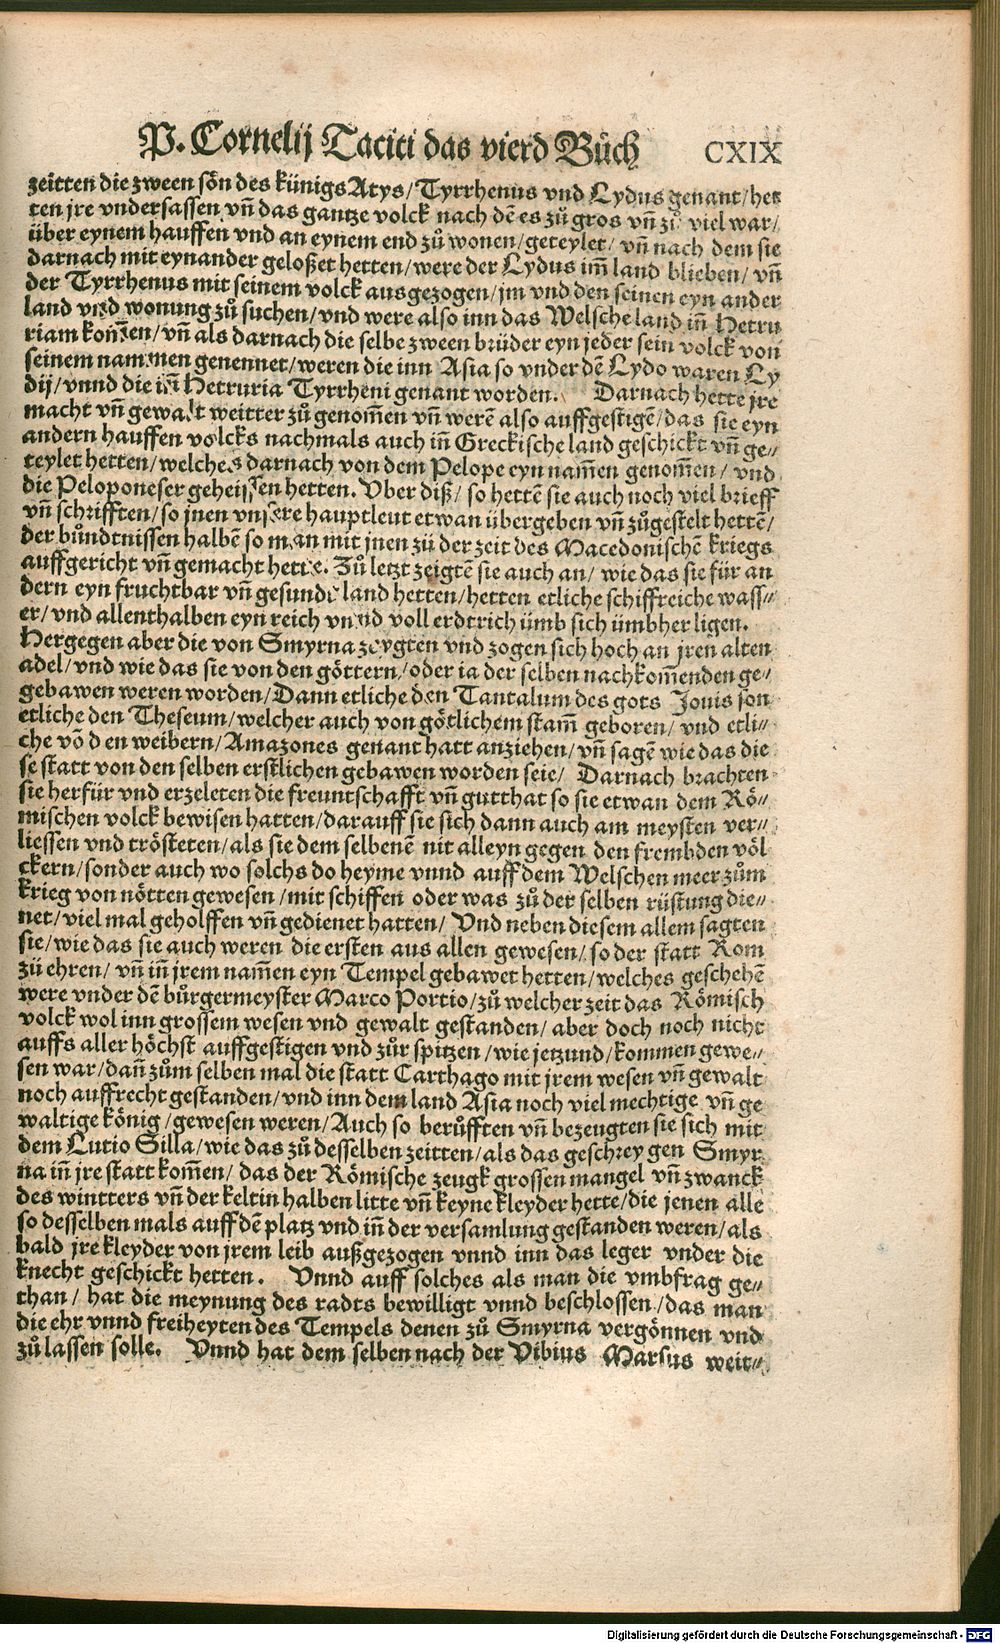 P. Cornelij Taciti das vierd Bůch CXIX
zeitten die zween sön des künigs Atys/ Tyrrhenus vnd Lydus genant/ het
ten jre vndersassen vñ das gantze volck nach dē es zů gros vñ zů viel war/
über eynem hauffen vnd an eynem end zů wonen/ geteylet/ vñ nach dem sie
darnach mit eynander geloßet hetten/ were der Lydus im̃ land blieben/ vñ
der Tyrrhenus mit seinem volck ausgezogen/ jm vnd den seinen eyn ander
land vnd wonung zů suchen/ vnd were also inn das Welsche land iñ Hetru
riam kom̃en/ vñ als darnach die selbe zween brüder eyn jeder sein volck von
seinem nammen genennet/ weren die inn Asia so vnder dē Lydo waren Ly
dij/ vnnd die iñ Hetruria Tyrrheni genant worden. Darnach hette jre
macht vñ gewalt weitter zů genom̃en vñ werē also auffgestigē/ das sie eyn
andern hauffen volcks nachmals auch iñ Greckische land geschickt vñ ge⸗
teylet hetten/ welches darnach von dem Pelope eyn nam̃en genom̃en/ vnd
die Peloponeser geheissen hetten. Vber diß/ so hettē sie auch noch viel brieff
vñ schrifften/ so jnen vnsere hauptleut etwan übergeben vñ zůgestelt hettē/
der bůndtnissen halbē so man mit jnen zů der zeit des Macedonischē kriegs
auffgericht vñ gemacht hette. Zů letzt zeigtē sie auch an/ wie das sie für an
dern eyn fruchtbar vñ gesund land hetten/ hetten etliche schiffreiche wass⸗
er/ vnd allenthalben eyn reich vnnd voll erdtrich ümb sich ümbher ligen.
Hergegen aber die von Smyrna zeygten vnd zogen sich hoch an jren alten
adel/ vnd wie das sie von den göttern/ oder ia der selben nachkom̃enden ge⸗
gebawen weren worden/ Dann etliche den Tantalum des gots Jouis son
etliche den Theseum/ welcher auch von götlichem stam̃ geboren/ vnd etli⸗
che vō den weibern/ Amazones genant hatt anziehen/ vñ sagē wie das die
se statt von den selben erstlichen gebawen worden seie/ Darnach brachten
sie herfür vnd erzeleten die freuntschafft vñ gutthat so sie etwan dem Rö⸗
mischen volck bewisen hatten/ darauff sie sich dann auch am meysten ver⸗
liessen vnd trösteten/ als sie dem selbenē nit alleyn gegen den frembden völ
ckern/ sonder auch wo solchs do heyme vnnd auff dem Welschen meer zům
krieg von nötten gewesen/ mit schiffen oder was zů der selben rüstung die⸗
net/ viel mal geholffen vñ gedienet hatten/ Vnd neben diesem allem sagten
sie/ wie das sie auch weren die ersten aus allen gewesen/ so der statt Rom
zů ehren/ vñ iñ jrem nam̃en eyn Tempel gebawet hetten/ welches geschehē
were vnder dē bůrgermeyster Marco Portio/ zů welcher zeit das Römisch
volck wol inn grossem wesen vnd gewalt gestanden/ aber doch noch nicht
auffs aller höchst auffgestigen vnd zůr spitzen/ wie jetzund/ kommen gewe⸗
sen war/ dañ zům selben mal die statt Carthago mit jrem wesen vñ gewalt
noch auffrecht gestanden/ vnd inn dem land Asia noch viel mechtige vñ ge
waltige könig/ gewesen weren/ Auch so berůfften vñ bezeugten sie sich mit
dem Lutio Silla/ wie das zů desselben zeitten/ als das geschrey gen Smyr
na iñ jre statt kom̃en/ das der Römische zeugk grossen mangel vñ zwanck
des wintters vñ der keltin halben litte vñ keyne kleyder hette/ die jenen alle
so desselben mals auff dē platz vnd iñ der versamlung gestanden weren/ als
bald jre kleyder von jrem leib außgezogen vnnd inn das leger vnder die
knecht geschickt hetten. Vnnd auff solches als man die vmbfrag ge⸗
than/ hat die meynung des radts bewilligt vnnd beschlossen/ das man
die ehr vnnd freiheyten des Tempels denen zů Smyrna vergönnen vnd
zů lassen solle. Vnnd hat dem selben nach der Vibius Marsus weit⸗
Digitalisierung gefördert durch die Deutsche Forschungsgemeinschaft - DFG